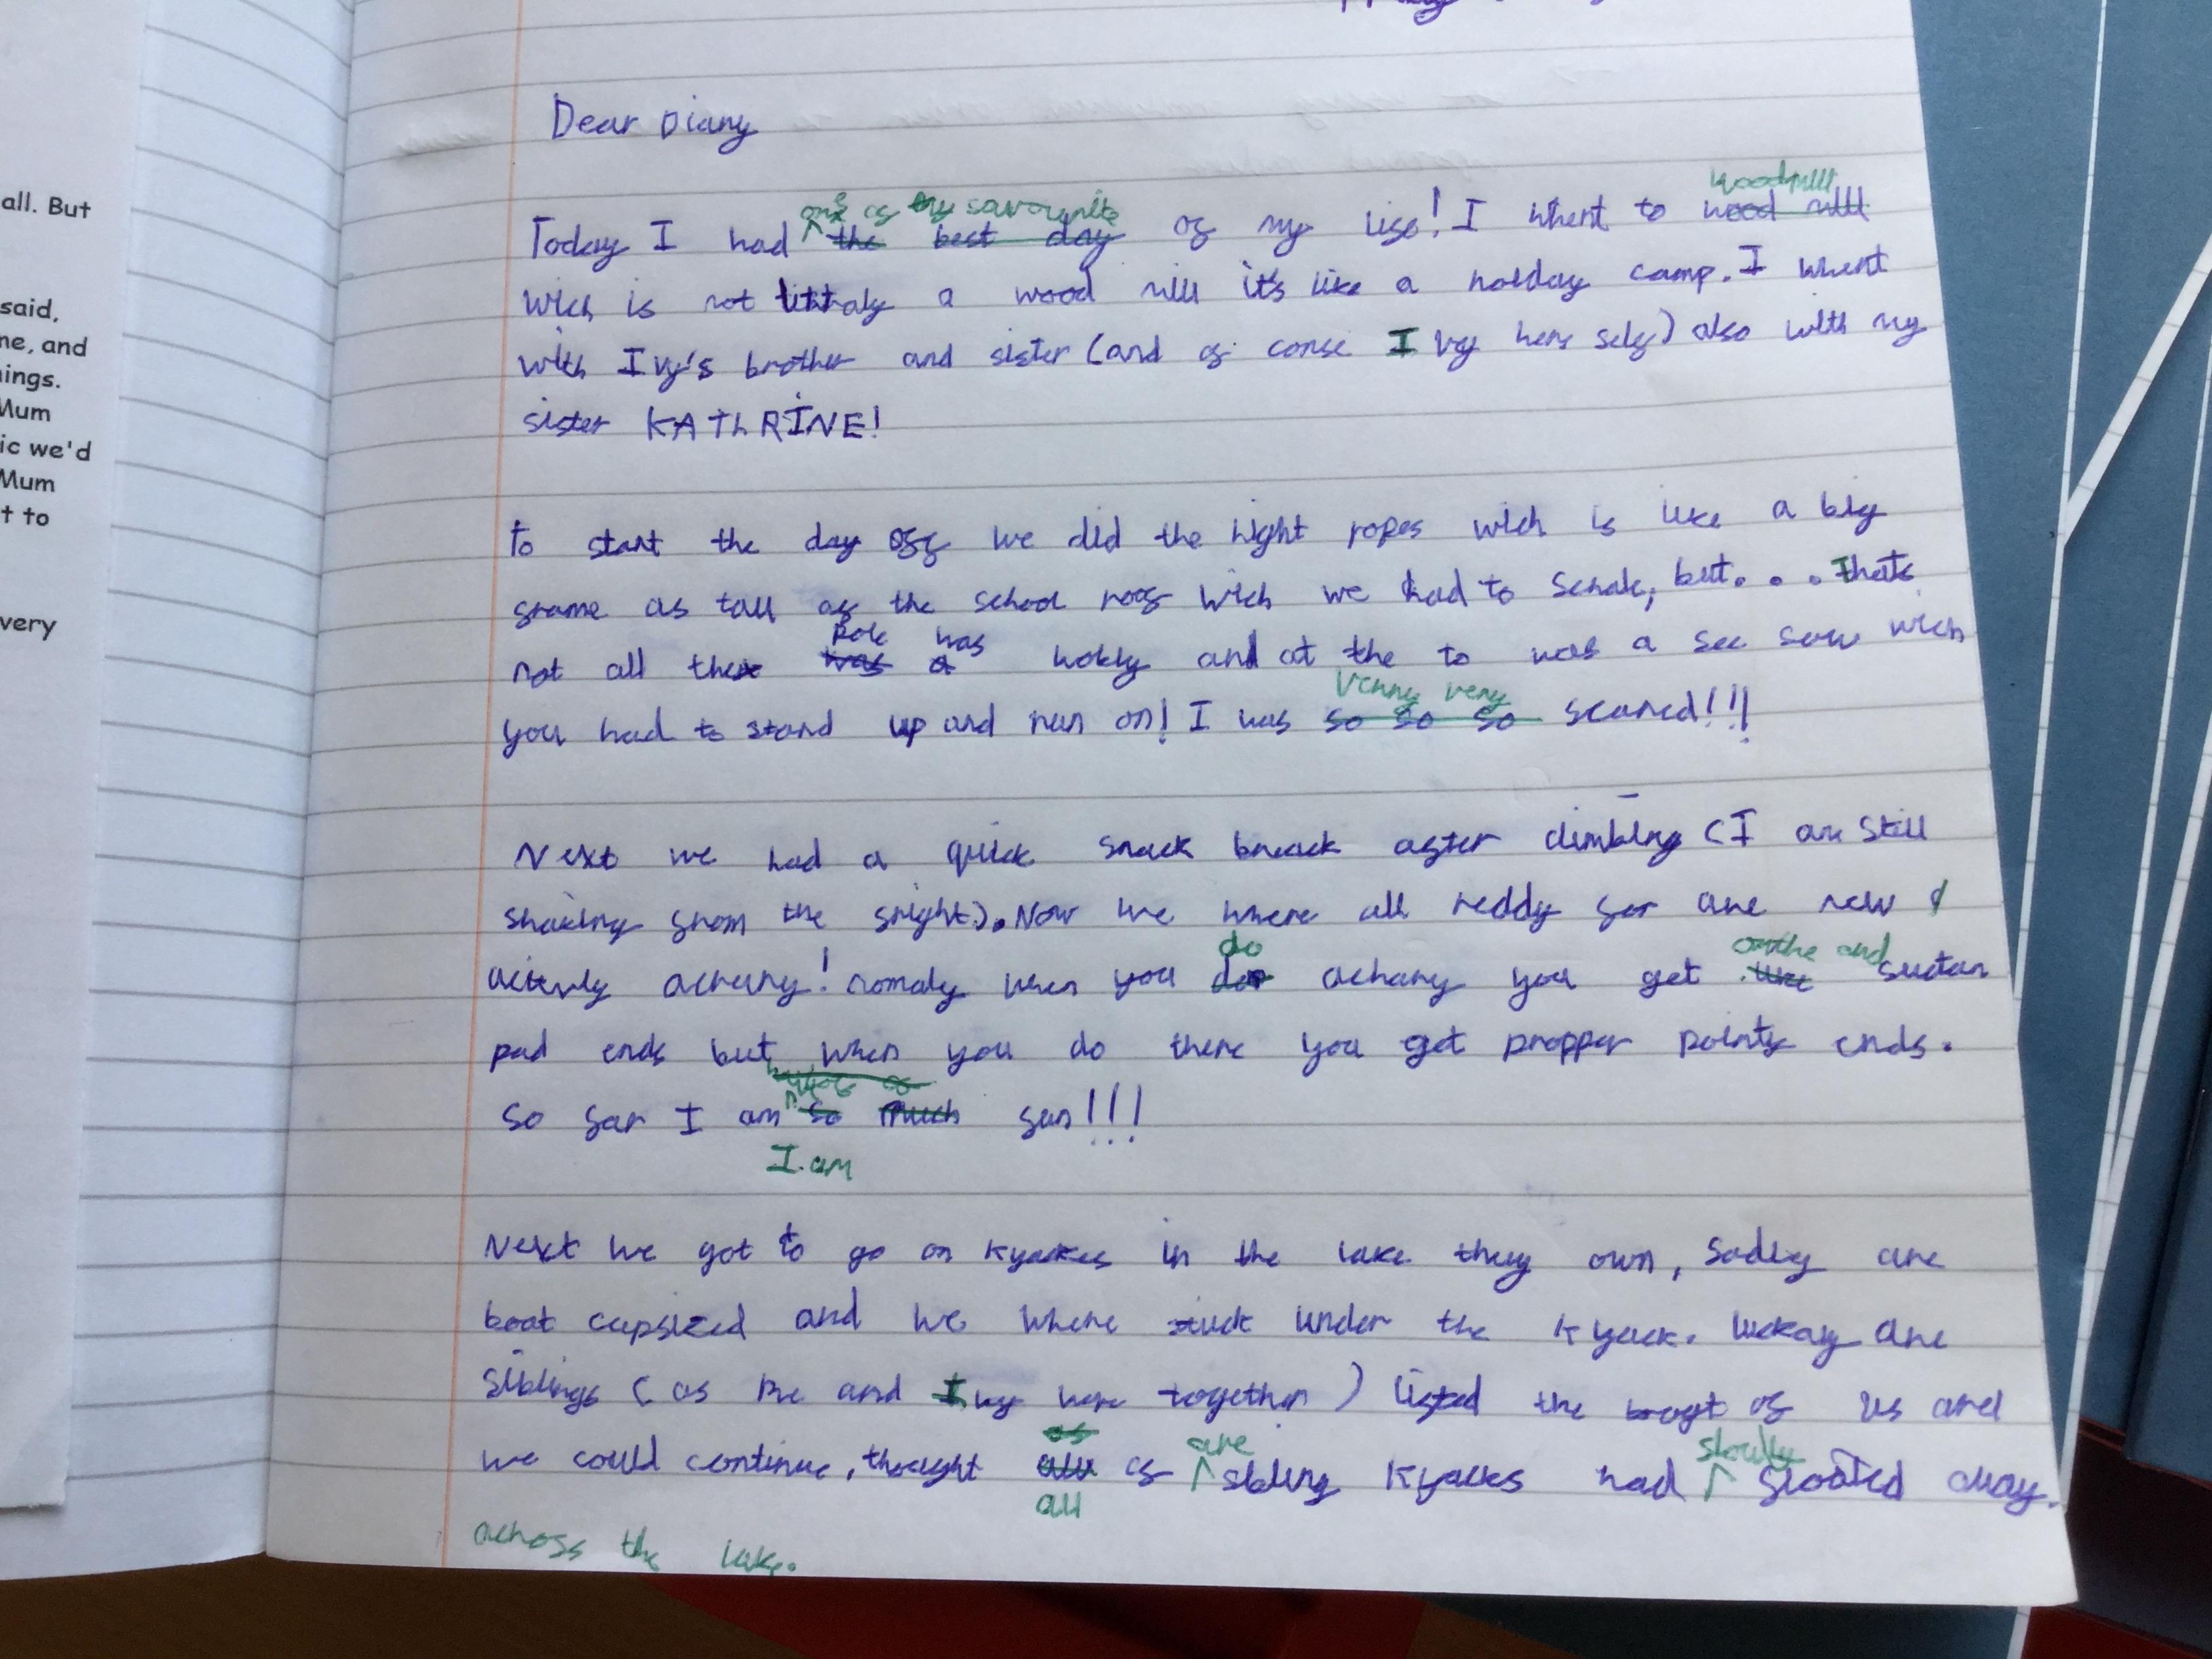 all. But
said,
me, and
ings.
Mum
ic we'd
Mum
t to
very
Dear Diary
one of my favourite woodmill
Today I had the best day of my life! I whent to wood mill
wich is not littraly a wood mill it's like a holday camp. I whent
with Ivy's brother and sister (and of corse Ivy her self) also with my
sister KATHRINE!
To start the day off we did the hight ropes wich is like a big
frame as tall as the school roof wich we had to schale, but... thats
Pole was
not all the was a wobly and at the to was a see saw wich
very very
you had to stand up and run on! I was so so so scared!!!
Next we had a quick snack breack after climbing (I am still
shaking from the fright). Now we where all reddy for are new
do on the end
activity achury! nomaly when you do achary you get like suctan
pad ends but when you do there you get propper pointy ends.
So far I am so much fun!!!
I am
Next we got to go on Kyackes in the lake they own, Sadly are
boat capsized and we where stuck under the Kyack. luckaly are
siblings (as me and Ivy were together) lifted the boat of us and
as are slowlly
we could continue, thought all of sibling Kyacks had floated away.
all
across the lake.